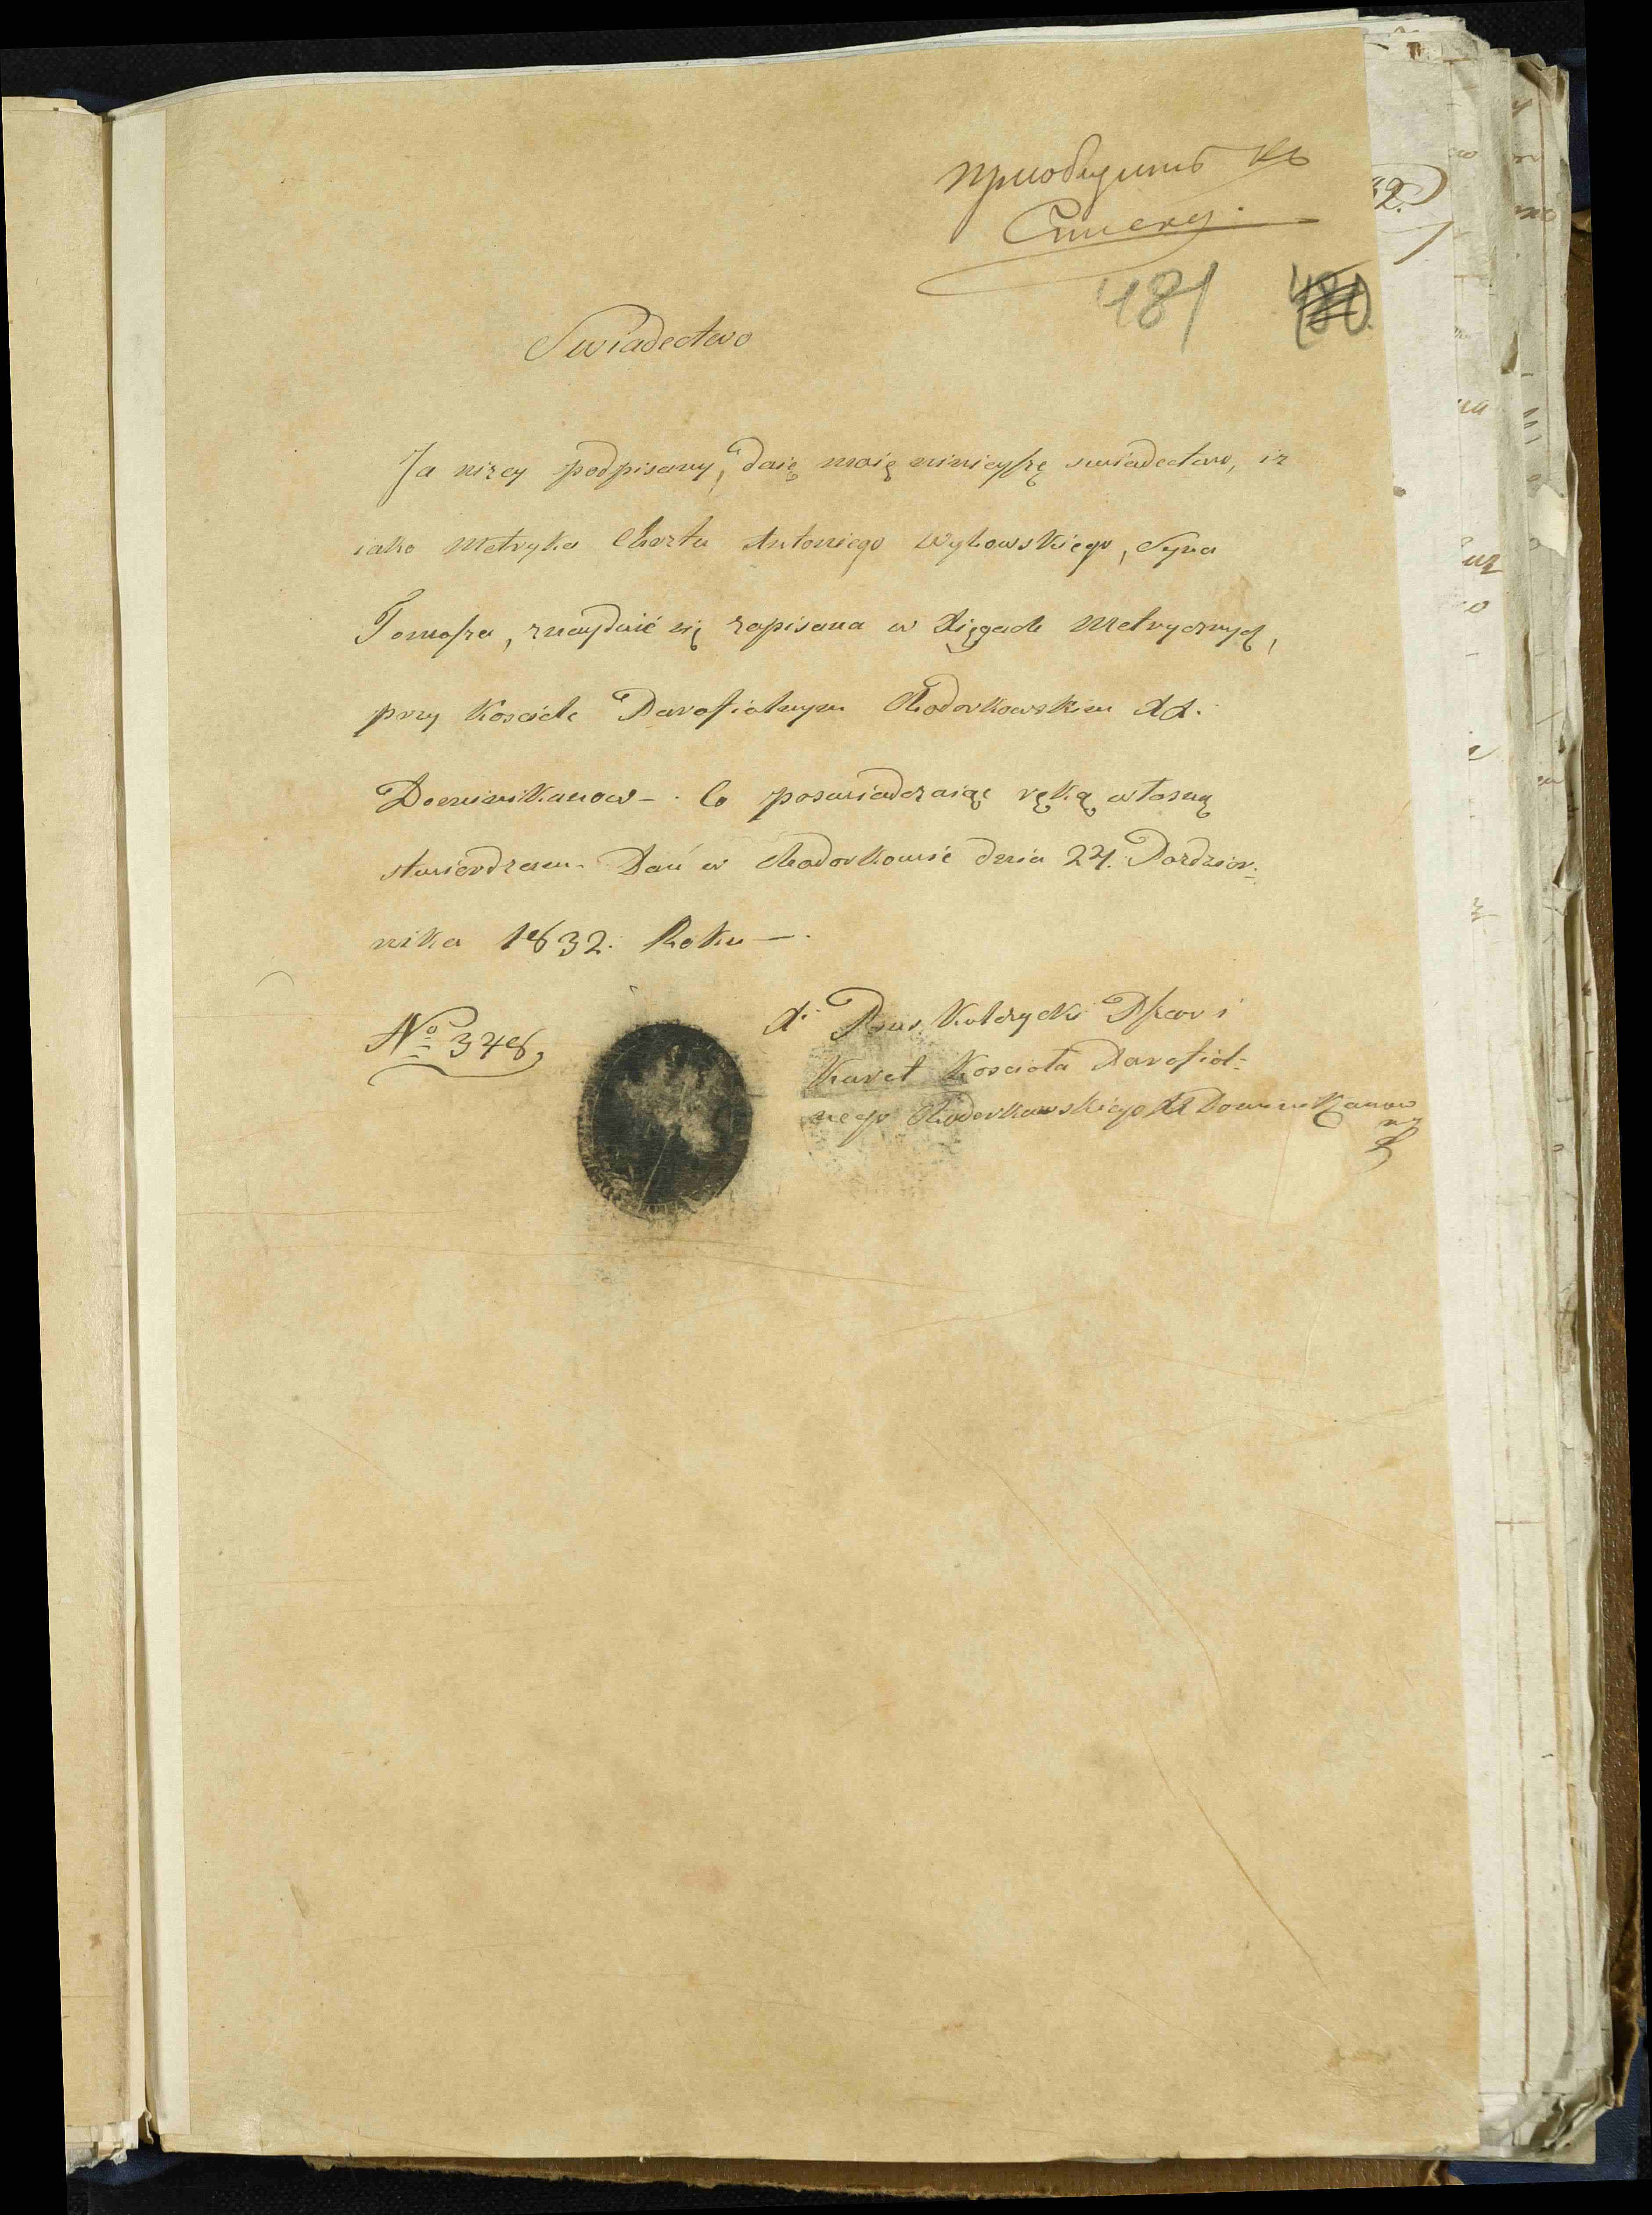 приобщить къ
Списку.
481 480
Swiadectwo
Ja niżey podpisany, daię moię ninieyszę swiadectwo, iż
iako Metryka Chrztu Antoniego Wyhowskiego, Syna
Tomasza, znayduie się zapisana w Xięgach Metrycznych,
przy Kosciele Parafialnym Chodorkowskim XX.
Dominikanow –. Co poswiadczaiąc ręką własną
stwierdzam. Dań w Chodorkowie dnia 24. Pazdzier=
nika 1832. Roku —.
X. Kulczycki Przeor i
No 348,
Kurat Koscioła Parafial=
nego Chodorkowskiego XX Dominikanow